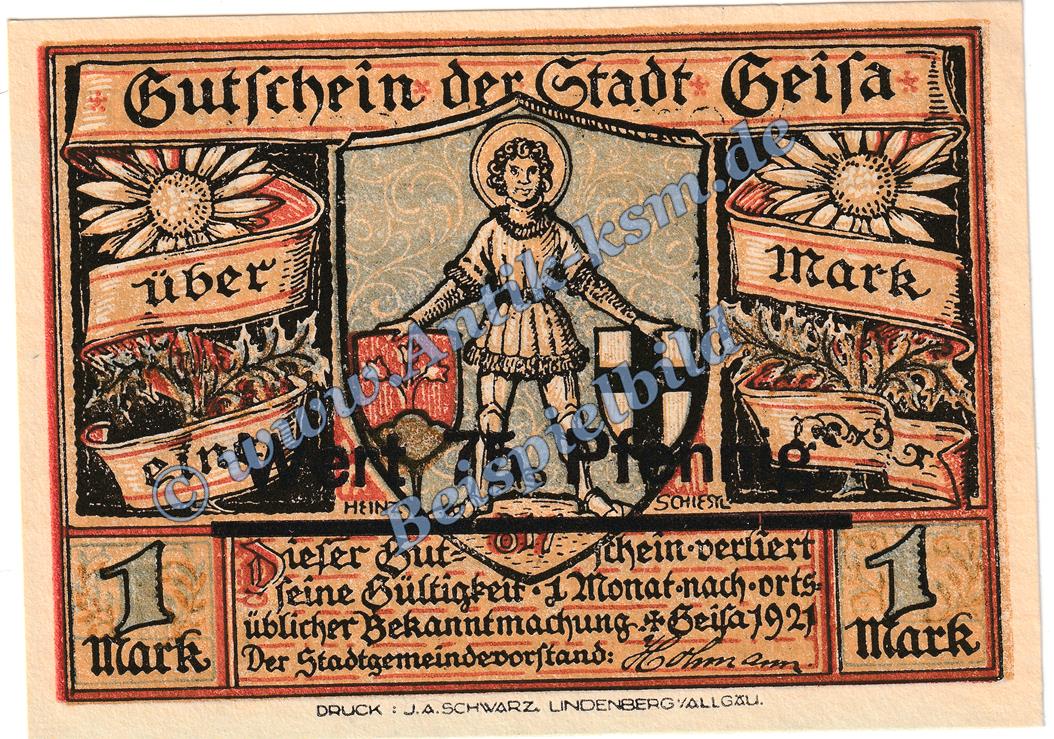 Gutschein der Stadt Geisa
über
Mark
eine
Wert 75 Pfennig
HEINZ
SCHIESTL
817
1
Mark
Dieser Gut-schein verliert
seine Gültigkeit · 1 Monat · nach · orts-
üblicher Bekanntmachung. Geisa 1921
Der Stadtgemeindevorstand: Hohmann
1
Mark
DRUCK : J.A. SCHWARZ, LINDENBERG/ALLGÄU.
© www.Antik-ksm.de
Beispielbild